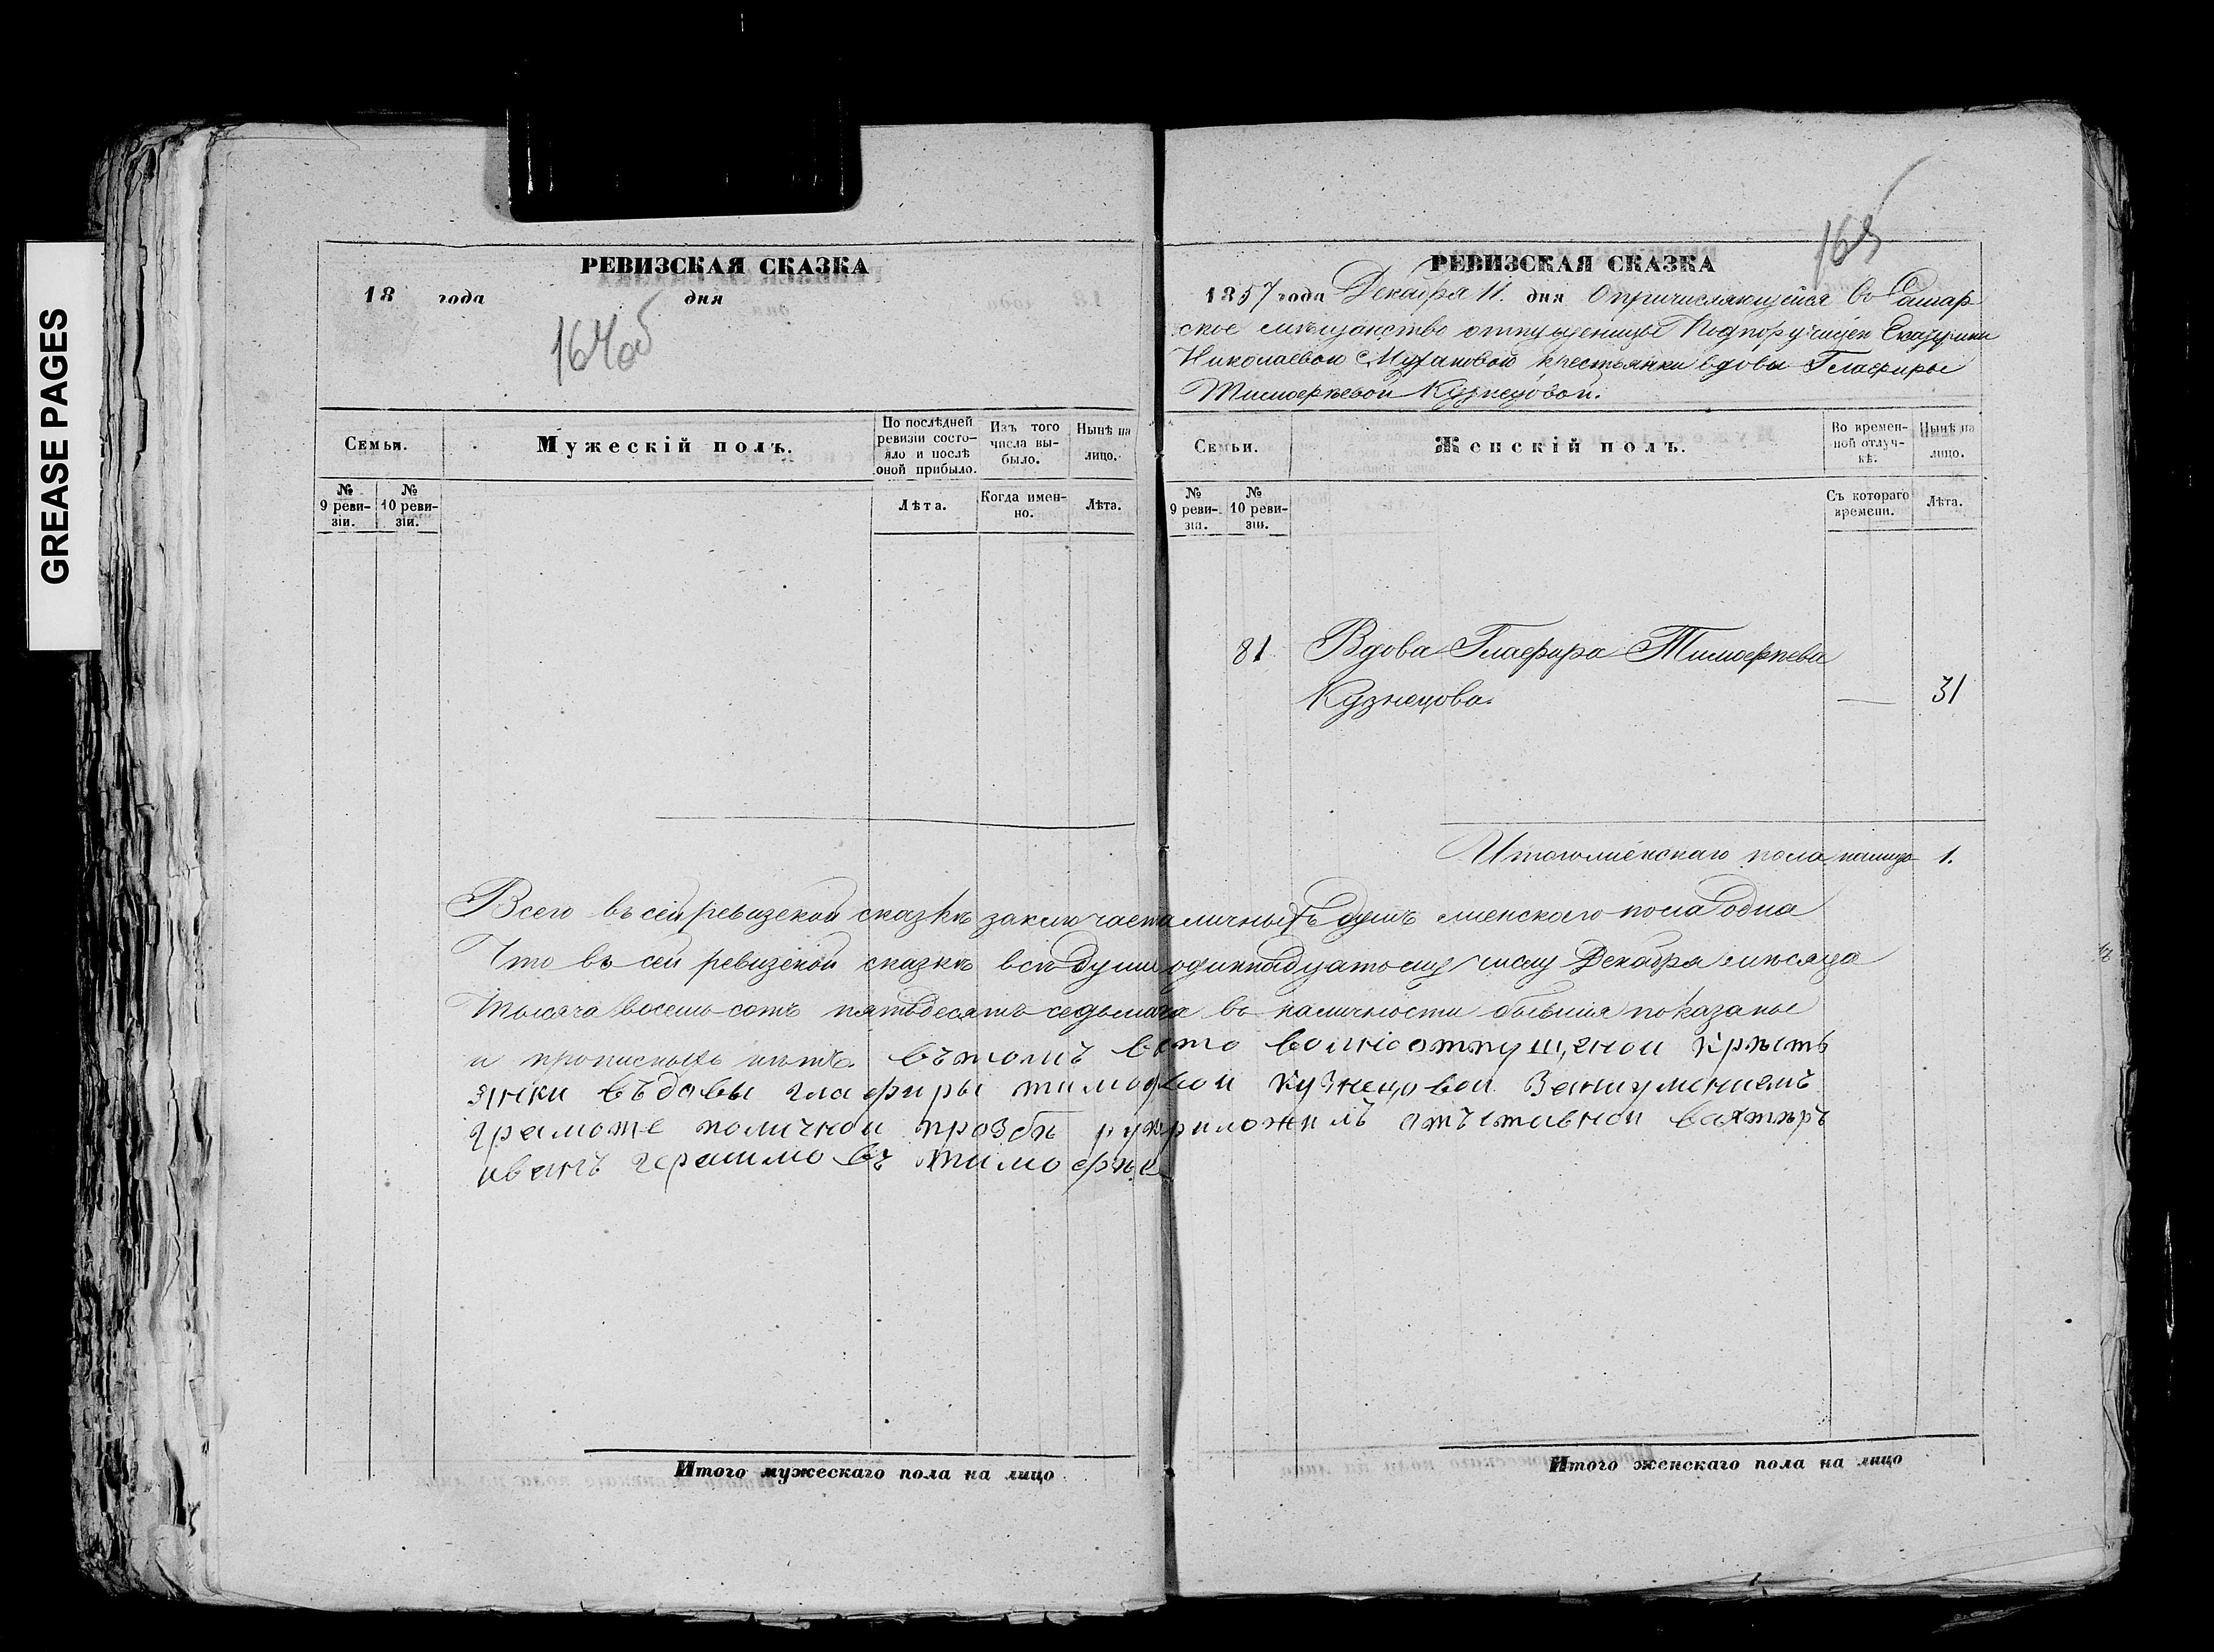 GREASE PAGES
РЕВИЗСКАЯ СКАЗКА
18 года дня
164об
Семьи.
Мужескій полъ.
По послѣдней ревизіи состо-
яло и послѣ оной прибыло.
Изъ того числа вы-
было.
Нынѣ на лицо.
№ 9 реви-
зіи.
№ 10 реви-
зіи.
Лѣта.
Когда имен-
но.
Лѣта.
165
РЕВИЗСКАЯ СКАЗКА
1857 года Декабря 11. дня О причисляющейся въ Самар
ское мѣщанство отпущеницы Подпоручицы
Николаевой крестьянки вдовы Глафиры
Тимофеѣвой Кузнецовой.
Семьи.
Женскій полъ.
Во времен-
ной отлуч-
кѣ.
Нынѣ на лицо.
№ 9 реви-
зіи.
№ 10 реви-
зіи.
Съ котораго времени.
Лѣта.
81 Вдова Глафира Тимофѣева
Кузнецова. — 31
Итого женскаго пола налицо 1.
Всего въ сей ревизской сказкѣ заключается личныхъ душъ женскаго пола одна
Что въ сей ревизской сказкѣ всѣ души одиннадцатому числу Декабря мѣсяца
тысяча восемь сотъ пятьдесятъ седьмага въ наличности бывшія показаны
и прописныхъ нѣтъ. вътомъ вѣто волнѣотпущеной крѣстъ
янки въдовы глафиры кузнецовой Занеуменіемъ
грамоте поличной прозбѣ рукприложилъ отъставной вахтѣръ
иванъ герасимовъ тимофѣе
Итого мужескаго пола на лицо
Итого женскаго пола на лицо